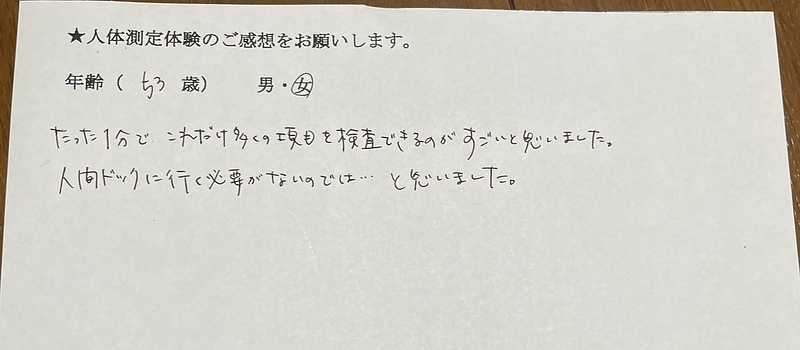 ★人体測定体験のご感想をお願いします。
年齢（ 53 歳） 男・女
たった1分で これだけ多くの項目を検査できるのがすごいと思いました。
人間ドックに行く必要がないのでは… と思いました。